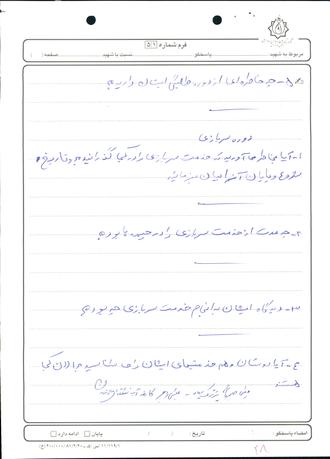 فرم شماره (۵)
مربوط به شهید
پاسخگو:
نسبت با شهید:
صفحه: ( )
۸۵- چه خاطره‌ای از دوره طلبگی ایشان دارید؟
دوره سربازی
۱- آیا بخاطر می‌آورید که خدمت سربازی را در کجا گذرانیده و تاریخ
شروع و پایان آنرا بیان بفرمائید
۲- چه مدت از خدمت سربازی را در جبهه‌ها بوده؟
۳- دیدگاه ایشان به انجام خدمت سربازی چه بوده؟
۴- آیا دوستان و هم خدمتیهای ایشان را می‌شناسید و الان کجا
هستند
امضاء پاسخگو:
تاریخ: / /
پایان
ادامه دارد
۲۸